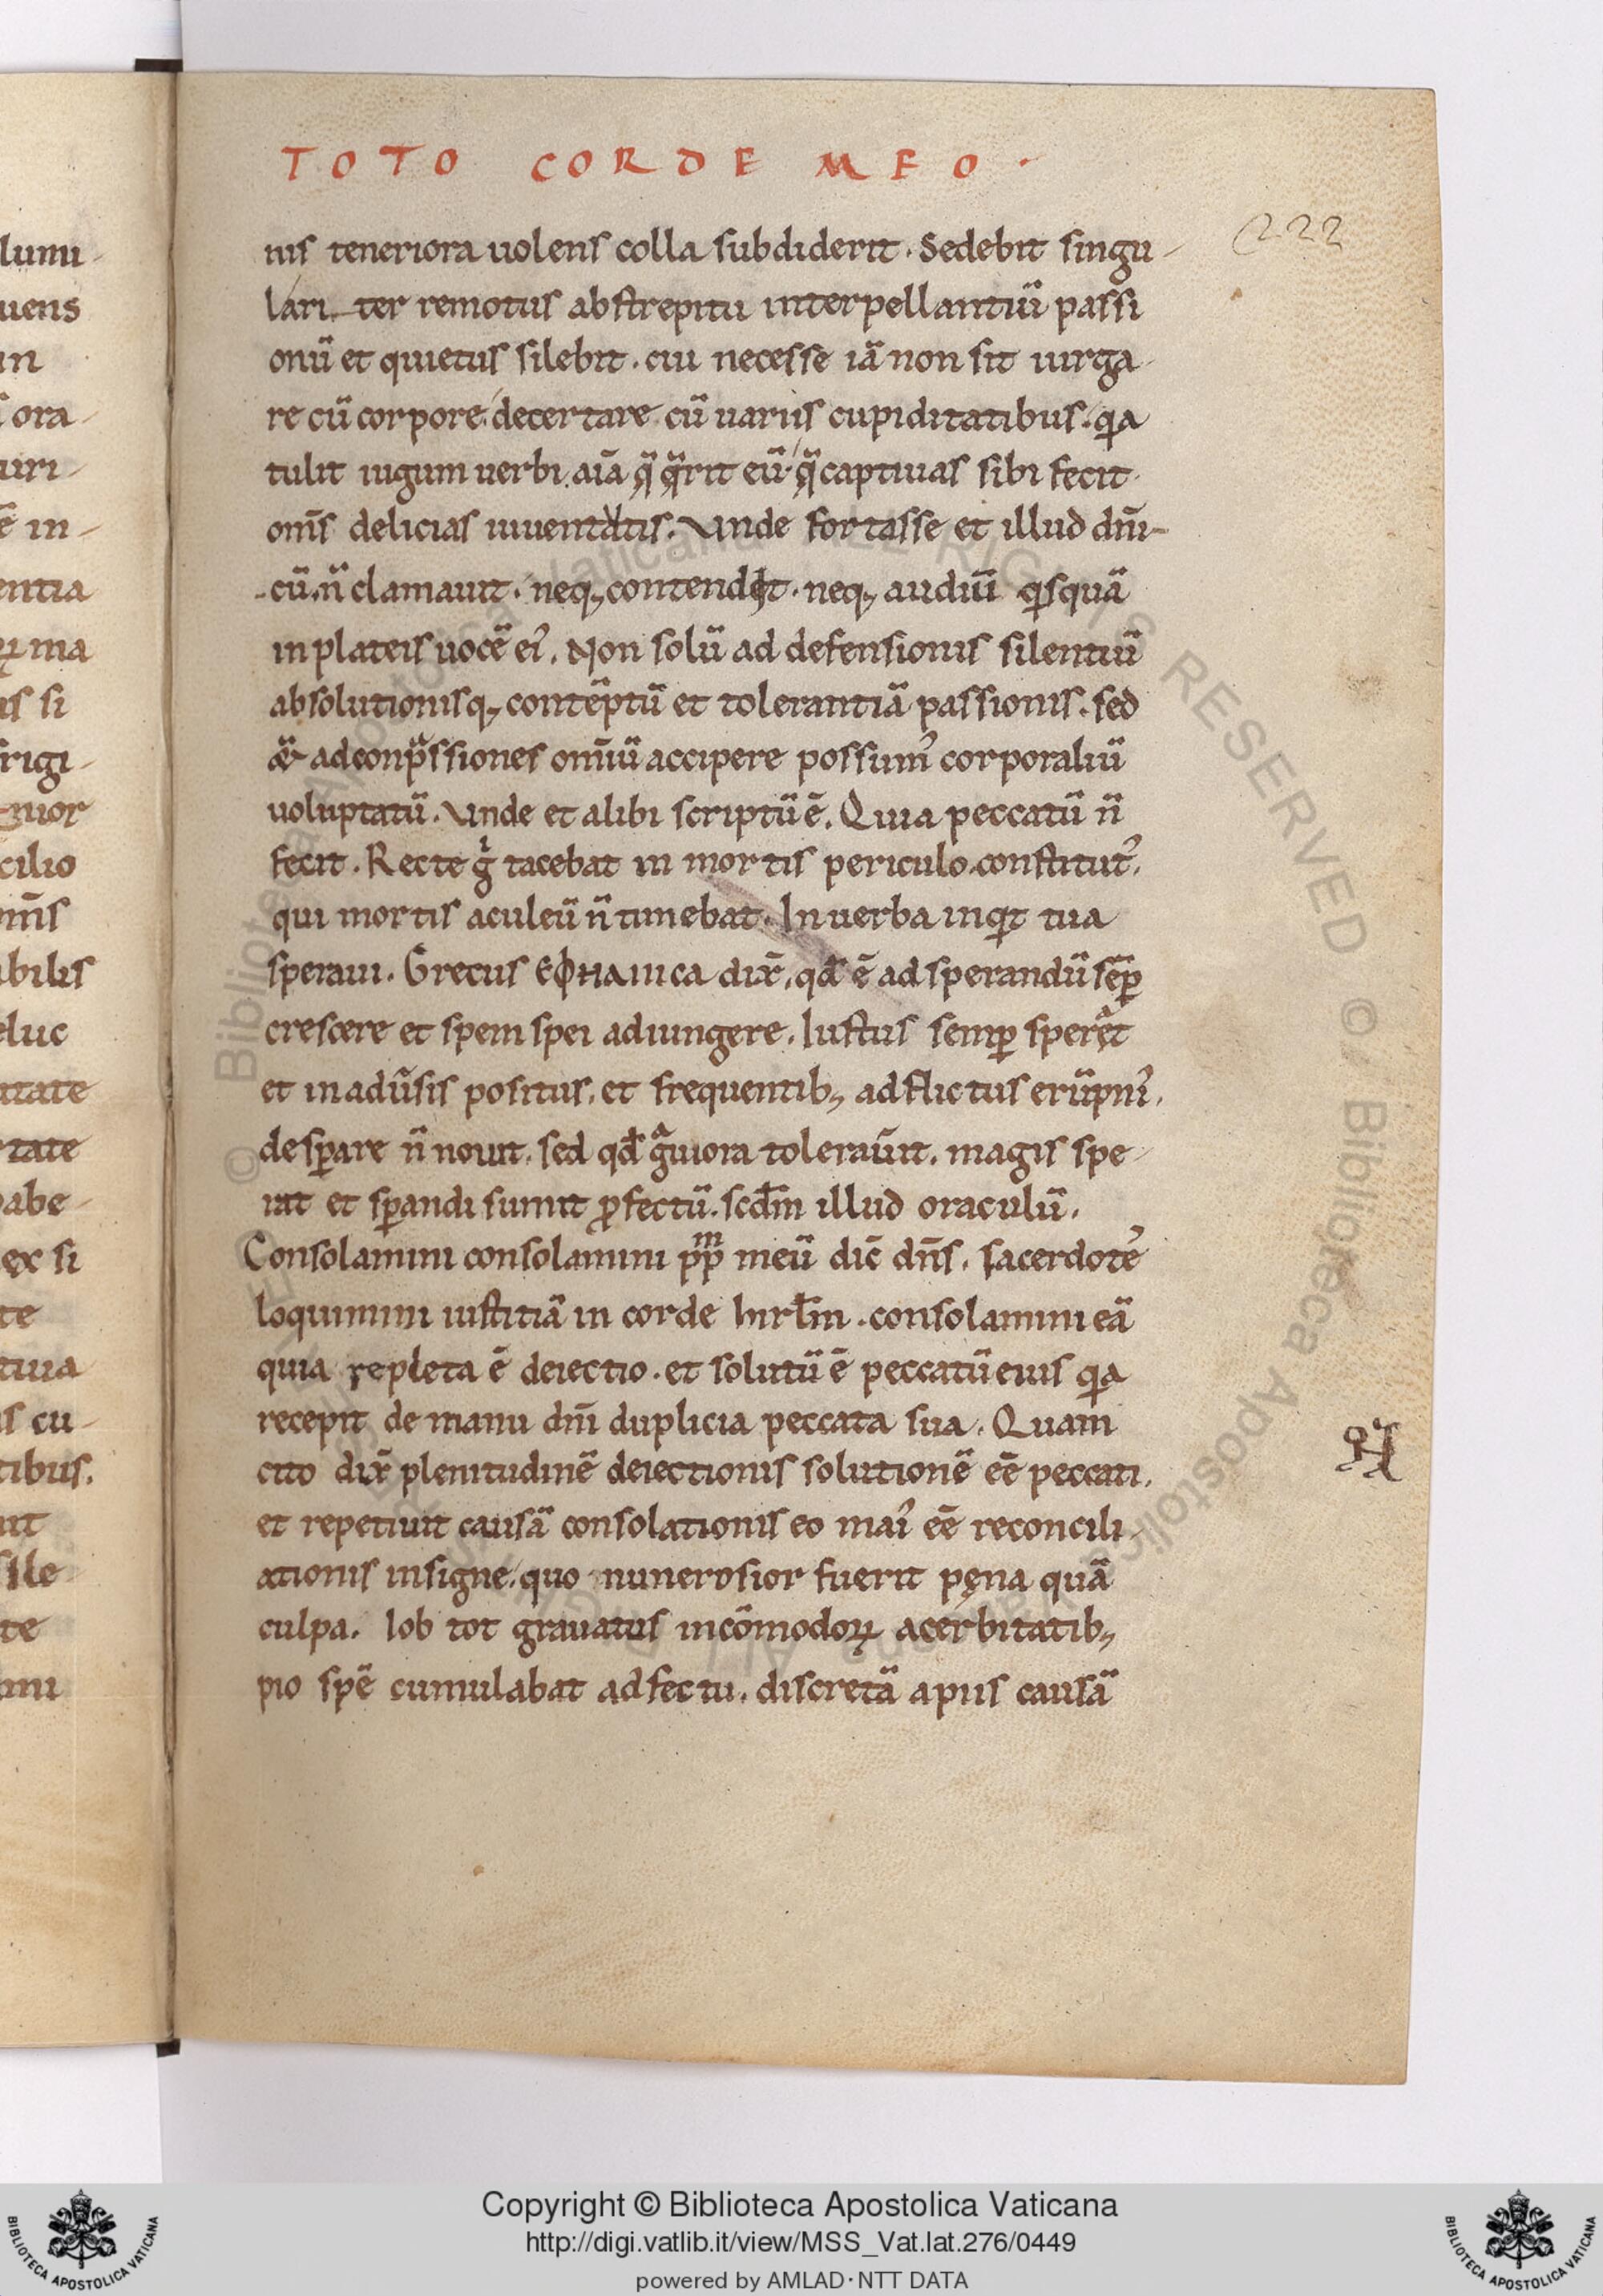 TOTO CORDE MEO .
222
nis teneriora uolens colla subdiderit . Sedebit singu-
lari ter remotus abstrepitu interpellantiū passi
onū et quietus silebit . cui necesse iā non sit iurga-
re cū corpore . decertare cū uariis cupiditatibus . qa
tulit iugum uerbi . aīa q̄ q̄rit eū . q̄ captiuas sibi fecit
om̄s delicias iuuentutis . Vnde fortasse et illud dn̄i-
cū . n̄ clamauit . neq; contendet . neq; audiuī qisquā
in plateis uocē ei᾽ . Non solū ad defensionis silentiū
absolutionisq; contēptū et tolerantiā passionis . sed
& adconpssiones om̄iū accipere possum᾽ corporaliū
uoluptatū . Vnde et alibi scriptū ē . Quia peccatū n̄
fecit . Recte g̊ tacebat in mortis periculo constitut᾽ .
qui mortis aculeū n̄ timebat . In uerba inqit tua
speraui . Grecus ЄΦHΛΠICA dix̄ . qd̄ ē ad sperandū sēp
crescere et spem spei adiungere . Iustus semp speret
et in adūsis positus . et frequentib; adflictus erūpni᾽ .
desparare n̄ nouit . sed qd̄ g̊uiora tolerauīt . magis spe-
rat et sp̄andi sumit ꝓfectū . scd̄m illud oraculū .
Consolamini consolamini pp̄m meū dic̄ dn̄s . sacerdote᾽
loquimini iustitiā in corde hirl̄m . consolamini eā
quia repleta ē deiectio . et solutū ē peccatū eius qa
recepit de manu dn̄i duplicia peccata sua . Quam
cito dix̄ plenitudinē deiectionis solutionē eē peccati .
et repetiuit causā consolationis eo mai᾽ eē reconcili-
ationis insigne . quo numerosior fuerit pęna quā
culpa . Iob tot grauatus incōmodoꝝ acerbitatib;
pio spē cumulabat adfectu . discretā apiis causā
lumi-
uens
in
ora-
uri-
ē in-
entia
ꝝ ma
is si
frigi-
cilio
m̄s
ibilis
eluc
itate
rtate
habe-
ex si
te
tiua
is cu-
tibus .
sile
te
Copyright © Biblioteca Apostolica Vaticana
http://digi.vatlib.it/view/MSS_Vat.lat.276/0449
powered by AMLAD·NTT DATA
BIBLIOTECA APOSTOLICA VATICANA
BIBLIOTECA APOSTOLICA VATICANA